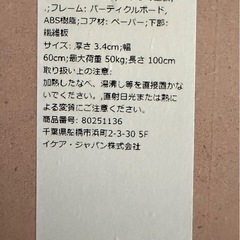 ;フレーム: パーティクルボード,
ABS樹脂;コア材: ペーパー;下部:
繊維板
サイズ: 厚さ 3.4cm;幅
60cm;最大荷重 50kg;長さ 100cm
取り扱い上の注意:
加熱したなべ、湯沸し等を直接置かな
いでください。,直射日光または熱に
よる変質にご注意ください。
商品番号: 80251136
千葉県船橋市浜町2-3-30 5F
イケア・ジャパン株式会社